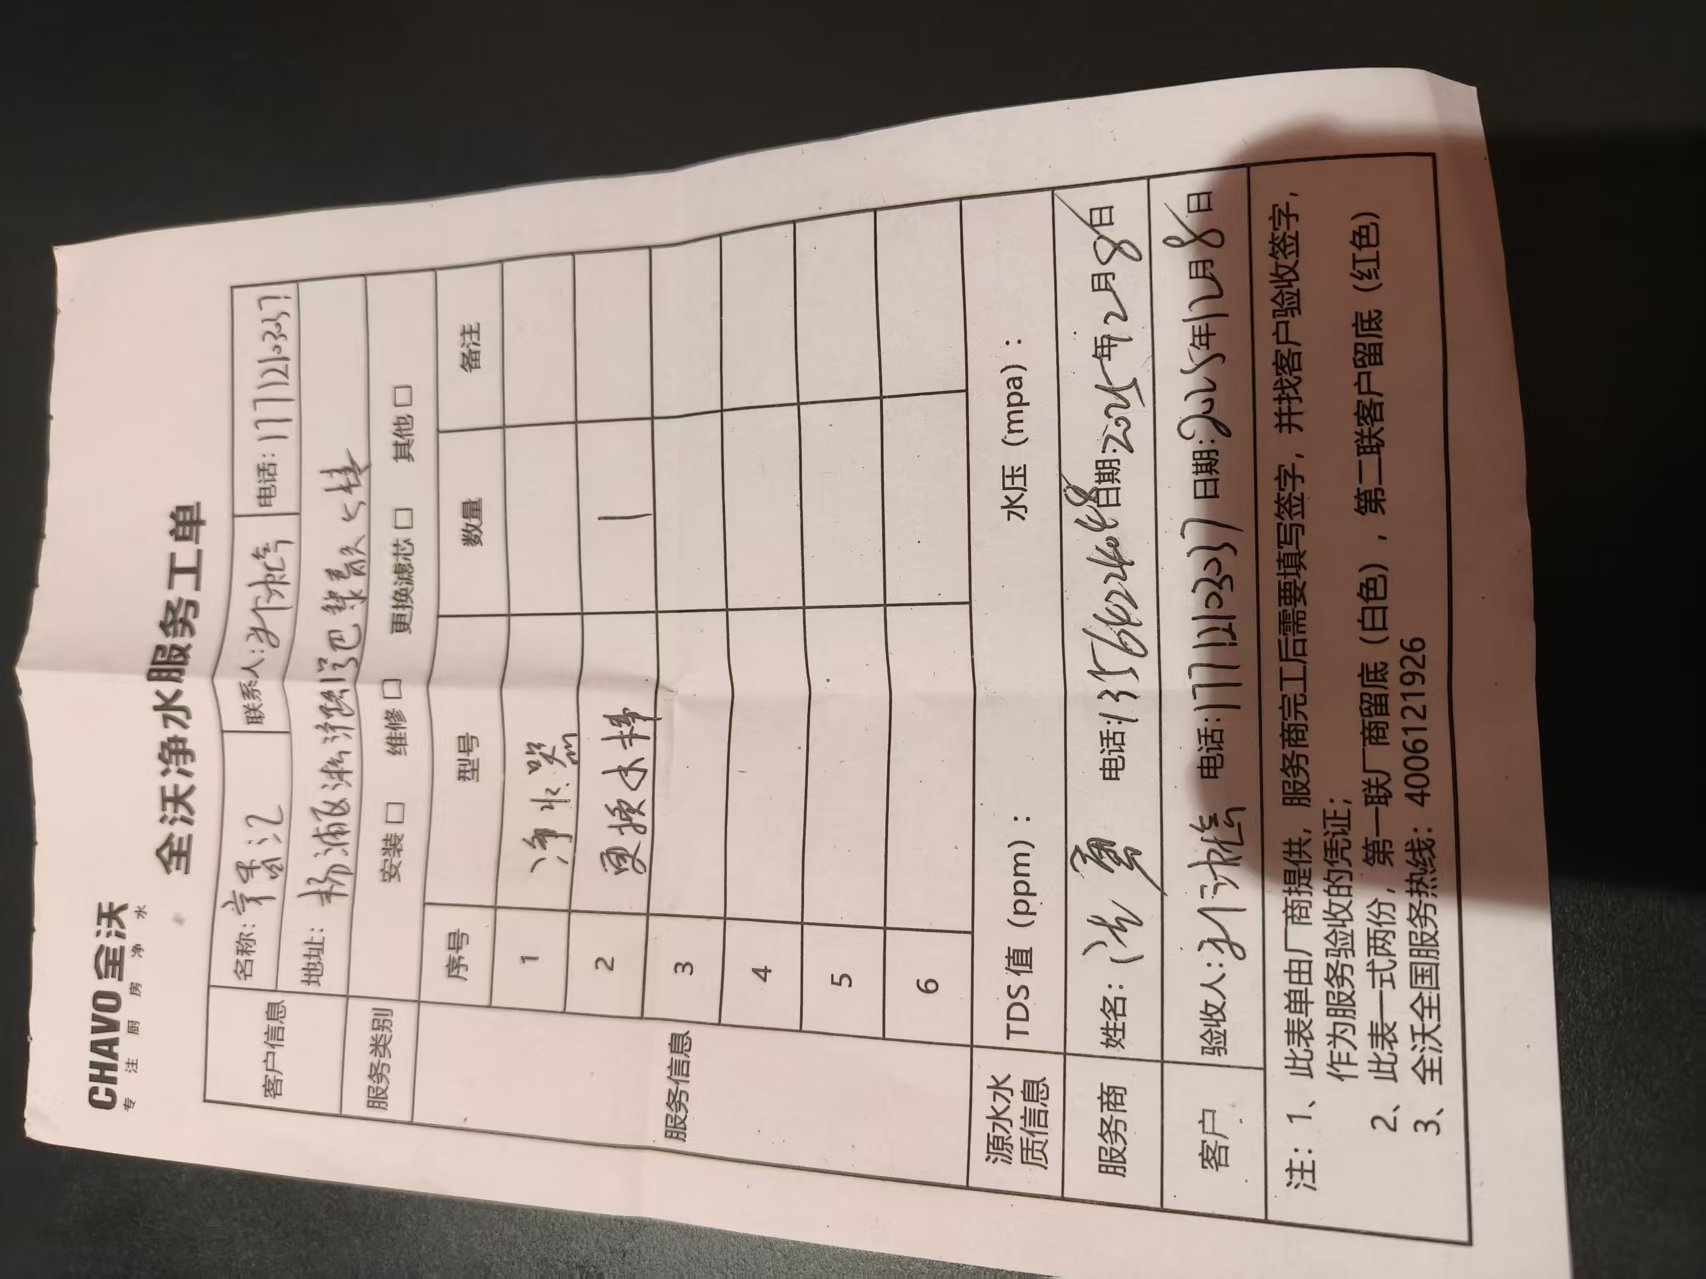 CHAVO 全沃
专注厨房净水
全沃净水服务工单
客户信息 名称: 联系人: 电话: 17712103037
地址: 杨浦区淞沪路
服务类别 安装 □ 维修 □ 更换滤芯 □ 其他 □
服务信息 序号 型号 数量 备注
1 净水器
2 更换水棒 1
3
4
5
6
源水水质信息 TDS 值 (ppm) : 水压 (mpa) :
服务商 姓名: 电话: 日期: 2025年12月8日
客户 验收人: 电话: 17712103037 日期: 2025年12月8日
注: 1、此表单由厂商提供, 服务商完工后需要填写签字, 并找客户验收签字,
作为服务验收的凭证;
2、此表一式两份, 第一联厂商留底 (白色) , 第二联客户留底 (红色)
3、全沃全国服务热线: 4006121926